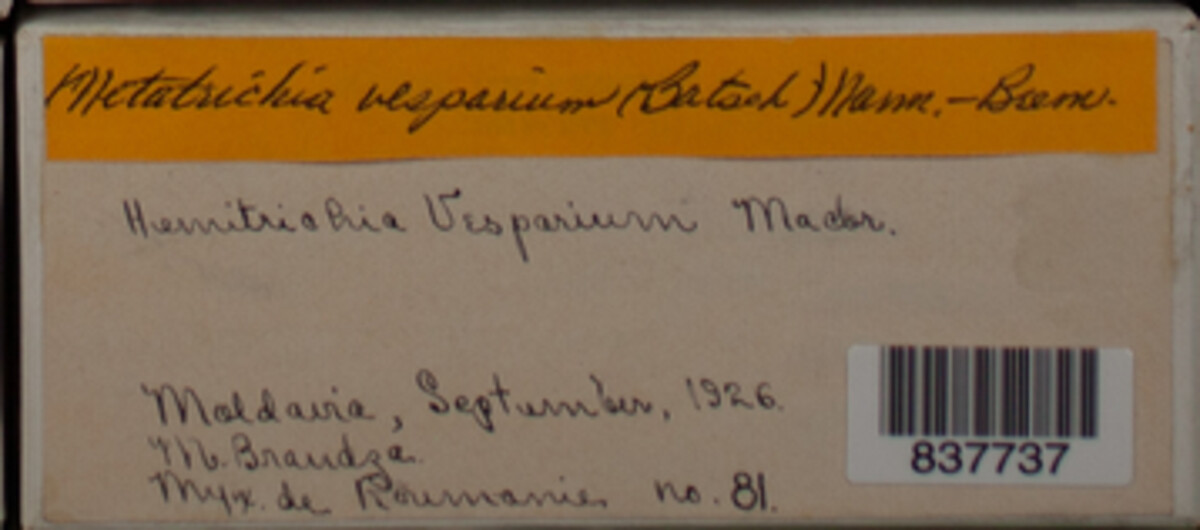 Metatrichia vesparium (Batsch) Nann.-Brem.
Hemitrichia Vesparium Macbr.
Moldavia, September, 1926.
M. Brandza.
Myx. de Roumanie no. 81.
837737